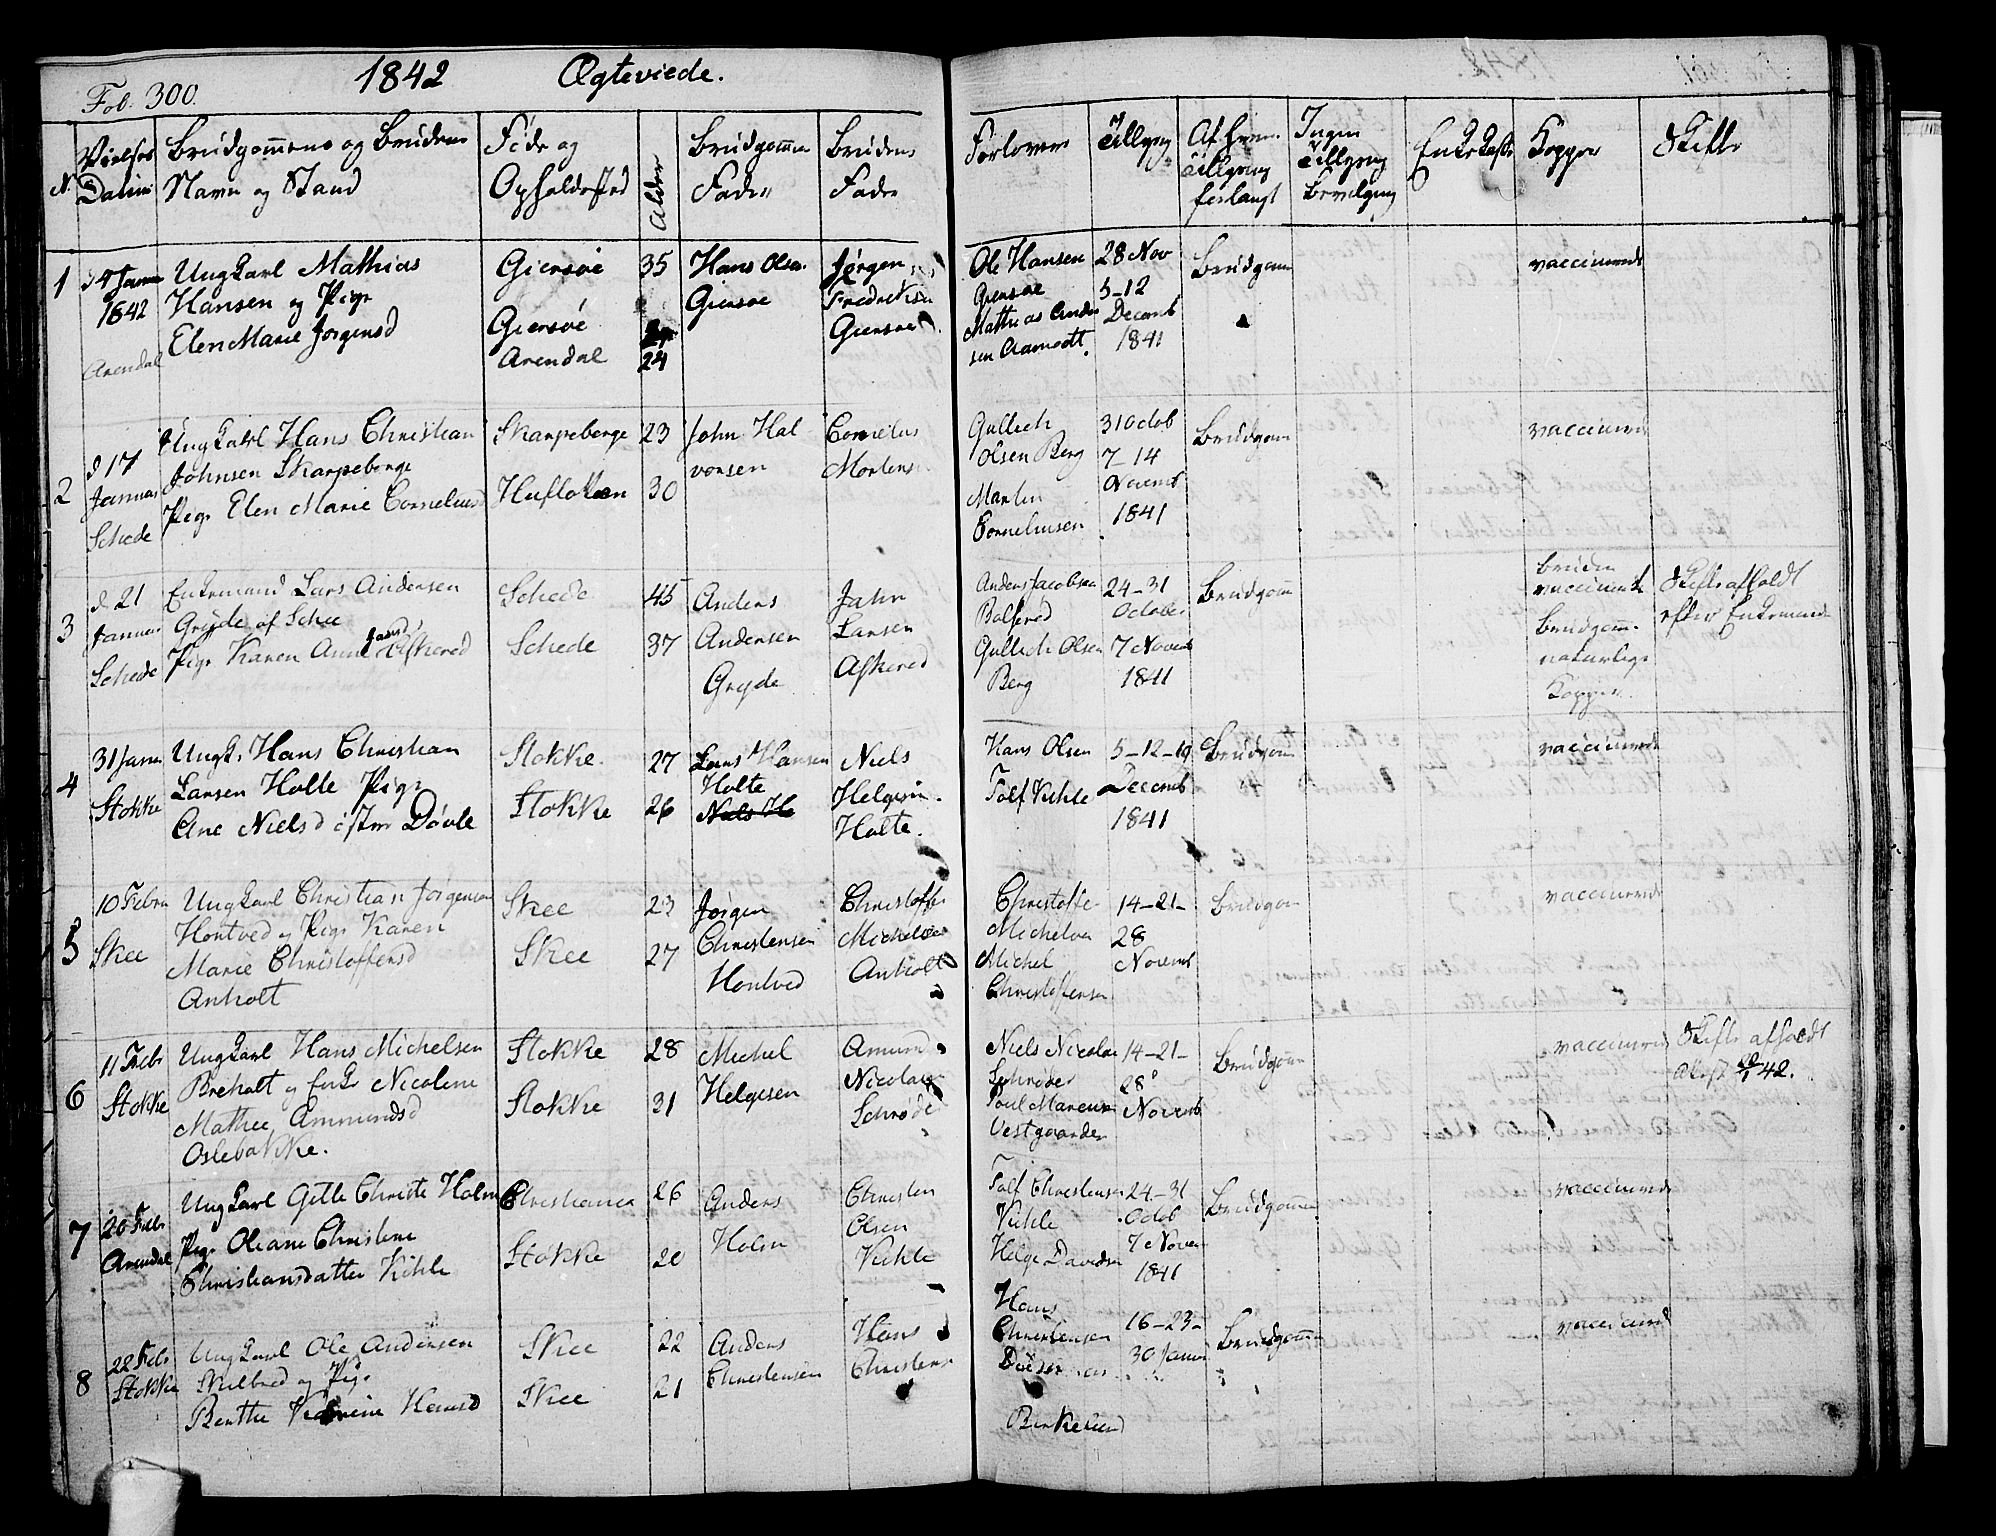 Fol. 300.
1842 Ægteviede.
N. Vielses Datum
Brudgommens og Brudens Navn og Stand
Føde og Opholdssted
Alder
Brudgommens Fader
Brudens Fader
Forlovere
Tillysng
Af hvem Tillysng forlangt
Ingen Tillysng Bevilgng
Enkekasse
Kopper
Skifte
1
d 4 Janua
1842
Arendal
Ungkarl Mathias
Hansen og Pige
Elen Marie Jørgensd
Giersøe
Giersøe
Arendal
35
24
Hans Olsen
Giersøe
Jørgen
Fredriksen
Giersøe
Ole Hansen
Giersøe
Mathias Ander
sen Aamodt.
28 Nov
5-12
Decemb
1841
Brudgom
vaccinerede
2
d 17
Januar
Schede
Ungkarl Hans Christian
Johnsen Skarpeborge
Pige Elen Marie Corneliusd
Skarpeborge
Hufloken
23
30
John Hal
vorsen
Cornelius
Mortens
Gullich
Olsen Berg
Martin
Corneliusen
31 Octob
7-14
Novemb
1841
Brudgom
vaccinerede
3
d. 21
Januar
Schede
Enkemand Lars Andersen
Gryde af Schee
Pige Karen Anne Jansd. Askered
Schede
Schede
45
37
Anders
Andersen
Gryde
Jahn
Larsen
Askered
Anders Jacobsen
Bolsered
Gullich Olsen
Berg
24-31
October
7 Novemb
1841
Brudgom
Bruden
vaccineret
Brudgom.
naturlige
Kopper
Skifte afholdt
efter Enkemand
4
31 Janua
Stokke
Ungk. Hans Christian
Larsen Holte Pige
Ane Nielsdatter Døvle
Stokke.
Stokke
27
26
Lars Hansen
Holte
Niels
Helgesen.
Holte.
Hans Olsen
Tolf Vihle
5-12-19
Decemb
1841
Brudgom
vaccinerede
5
10 Febru
Skee
Ungkarl Christian Jørgensen
Hontved og Pige Karen
Marie Christoffersd
Anholt
Skee
Skee
23
27
Jørgen
Christensen
Hontved
Christoffe
Michelsen
Anholt
Christoffe
Michelsen
Michel
Christofersen
14-21-
28
Novemb
Brudgom
vaccinerede
6
11 Febr
Stokke
Ungkarl Hans Michelsen
Breholt og Enke Nicoline
Mathee Ammundsd
Oslebakke.
Stokke
Stokke
28
31
Michel
Helgesen
Amund
Nicolai
Schrøder
Niels Nicolai
Schrøder
Poul Marcus
Vestgaarden
14-21-
28
Novemb
Brudgom
vaccinered
Skifte afholdt
42.
7
26 Febr
Arendal
Ungkarl Gitle Christe Holm
Pige Oleane Christine
Christiansdatter Vihle
Christiania
Stokke
26
20
Anders
Holm
Christen
Olsen
Vihle
Tolf Christensen
Vihle
Helge Davidsen
24-31
Octob
7 Novem
1841
Brudgom
vaccinerede
8
28 Febr
Stokke
Ungkarl Ole Andersen
og Pige
Berthe Hansd
Skee
Skee
22
21
Anders
Christensen
Hans
Christens
Hans
Christensen
Birkelund
16-23-
30 Janua
Brudgom
vaccinered